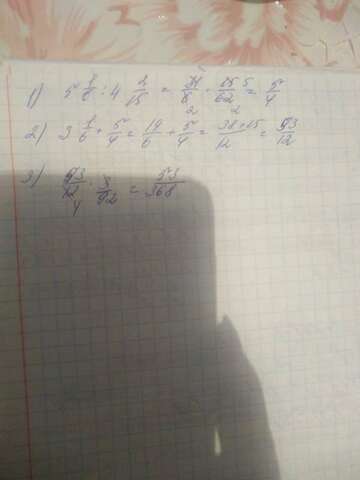 1) 5 1/6 : 4 2/15 = 31/6 · 15/62 = 5/4
2) 3 1/6 + 5/4 = 19/6 + 5/4 = 38+15/12 = 53/12
3) 53/12 · 3/92 = 53/368